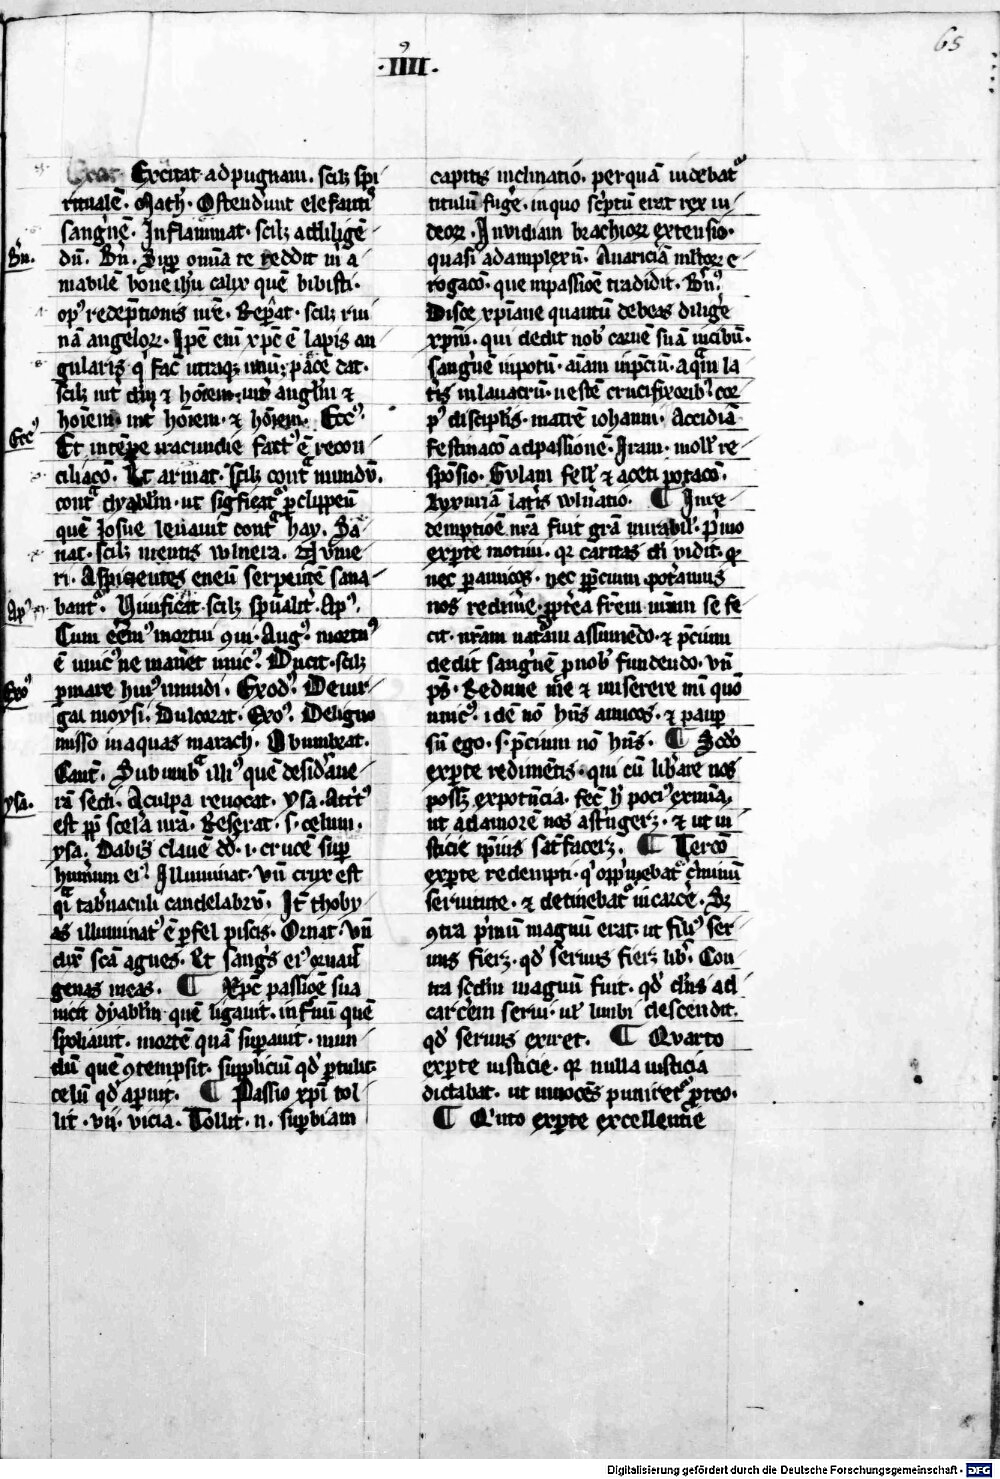 65
·IIII·
Excitat ad pugnam. scilz spi
ritualē. Math. Ostendunt elefanti
sangnē. Inflammat. scilz ad diligē
dū. Bn̄. Sup omīa te reddit m̄ a
mabilē bone ihu calix quē bibisti.
op⁹ redēptionis nrē. Reparat. scilz rui
nā angelor. Ipē eni xpc ē lapis an
gularis q facͥ utraqz unū; pacē dat.
scilz int̄ dm̄ ⁊ hoīem. int̄ anglm̄ ⁊
hoīem. int̄ hoīem. ⁊ hoīem. Ecc⁹.
Et in tēpe iracundie fact⁹ ē recon
ciliaco. Et armat. scilz contᵃ mundū.
contᵃ dyablm. ut sigficatᵃ p clypeū
quē Iosue leuauit contᵃ hay. Sa
nat. scilz mentis wlnera. Nume
ri. Aspicientes eneū serpentē sana
bantᵃ. Uiuificat scilz spūalit. Ap⁹.
Cum eēm⁹ mortui 9ui. Aug⁹. mortu⁹
ē unic⁹ ne manet unic⁹. Ducit. scilz
p mare hui⁹ mundi. Exod⁹. De uir
ga moysi. Dulcorat. Exo⁹. De ligno
misso in aquas marach. Obumbrat.
Cant. Sub umbᵃ illi⁹ quē desidaue
rā sedi. A culpa reuocat. ysa. Attͥt⁹
est pp scela nrā. Reserat. s. celum.
ysa. Dabis clauē dd. i. crucē sup
humum ei⁹. Illuminat. Vn crux est
qi tabnaculi candelabrū. It thoby
as illuminat⁹ ē p fel piscis. Ornat. Vn
dix scā agnes. Et sangs ei⁹ ornauͭ
genas meas. ¶ Xpc passiōe sua
uicit dyablm quē ligauit. infnū quē
spoliauit. mortē quā supauit. mun
dū quē 9tempsit. suppliciū qd ptulit.
celū qd apuit. ¶ Passio xpi tol
lit. vij. vicia. Tollit. n. supbiam
Bn̄.
Ecc⁹
Ap⁹
Exo⁹
ysa.
capitis inclinatio. per quā uidebatᵃ
titulū fugē. in quo scptū erat rex iu
deor. Inuidiam brachior extensio.
quasi ad amplexū. Auariciā mltor e
rogaco. que in passiōe tradidit. Bn⁹.
Disce xpiane quantū debeas diligē
xpm. qui dedit nob carnē suā in cibū.
sangnē in potū. aīam in pciū. aqm la
tis in lauacrū. uestē crucifixorib⁹. cor
p⁹ discipls. matrē iohanni. Accidiā
festinaco ad passionē. Iram. moll re
spōsio. Gulam fell ⁊ aceti potaco.
Luxuriā latis wlnatio. ¶ In re
demptioē nrā fuit grā mirabil. pmo
ex pte motiui. qr caritas di vidit. q
nec p amicos. nec p pcium potamus
nos redimē. ppea frem unum se fe
cit. nram natam assumēdo. ⁊ pcium
dedit sangnē p nob fundendo. vn
ps. Redime me ⁊ miserere mi quo
unic⁹. idē nō hns amicos. ⁊ paup
sū ego. s. pcium nō hns. ¶ Sedo
ex pte redimētis. qui cū libare nos
possz ex potncia. fecͥ h poci⁹ ex mīa.
ut ad amorē nos astngerz. ⁊ ut iu
sticie ipius satͥ facerz. ¶ Tercō
ex pte redempti. q opprimebatᵃ cͥminū
seruitute. ⁊ detinebatᵃ in carcē. Sz
9tra pimū magnū erat. ut fili⁹ ser
uus fierz. qd seruus fierz libͥ. Con
tra scdm magnū fuit. qd dns ad
carcēm serui. ul limbi descendit.
qd seruus exiret. ¶ Quarto
ex pte iusticie. qr nulla iusticia
dictabat. ut innocēs puniretᵃ p reo.
¶ Qͥnto ex pte excellentie
Digitalisierung gefördert durch die Deutsche Forschungsgemeinschaft · DFG